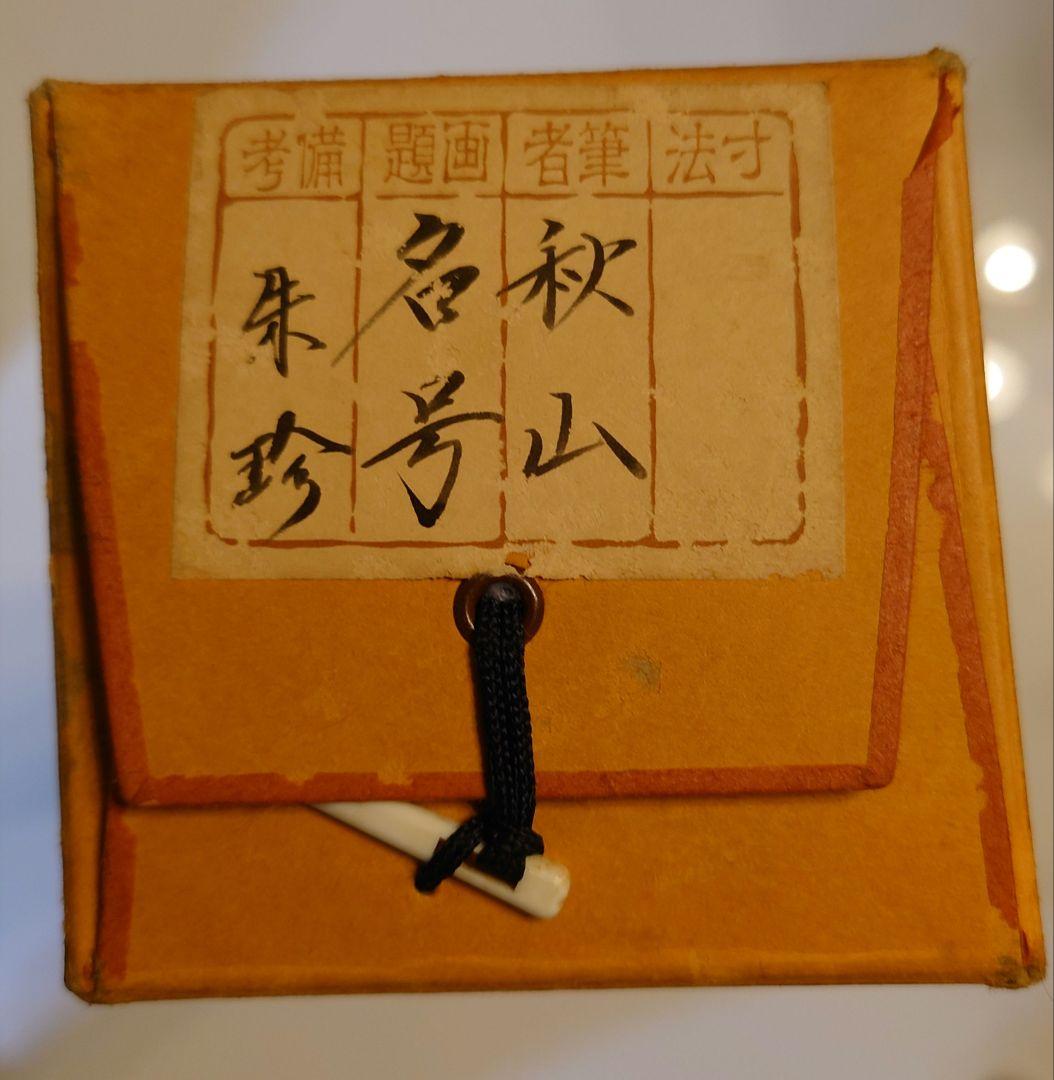 寸法
筆者
秋山
画題
名号
備考
朱珍